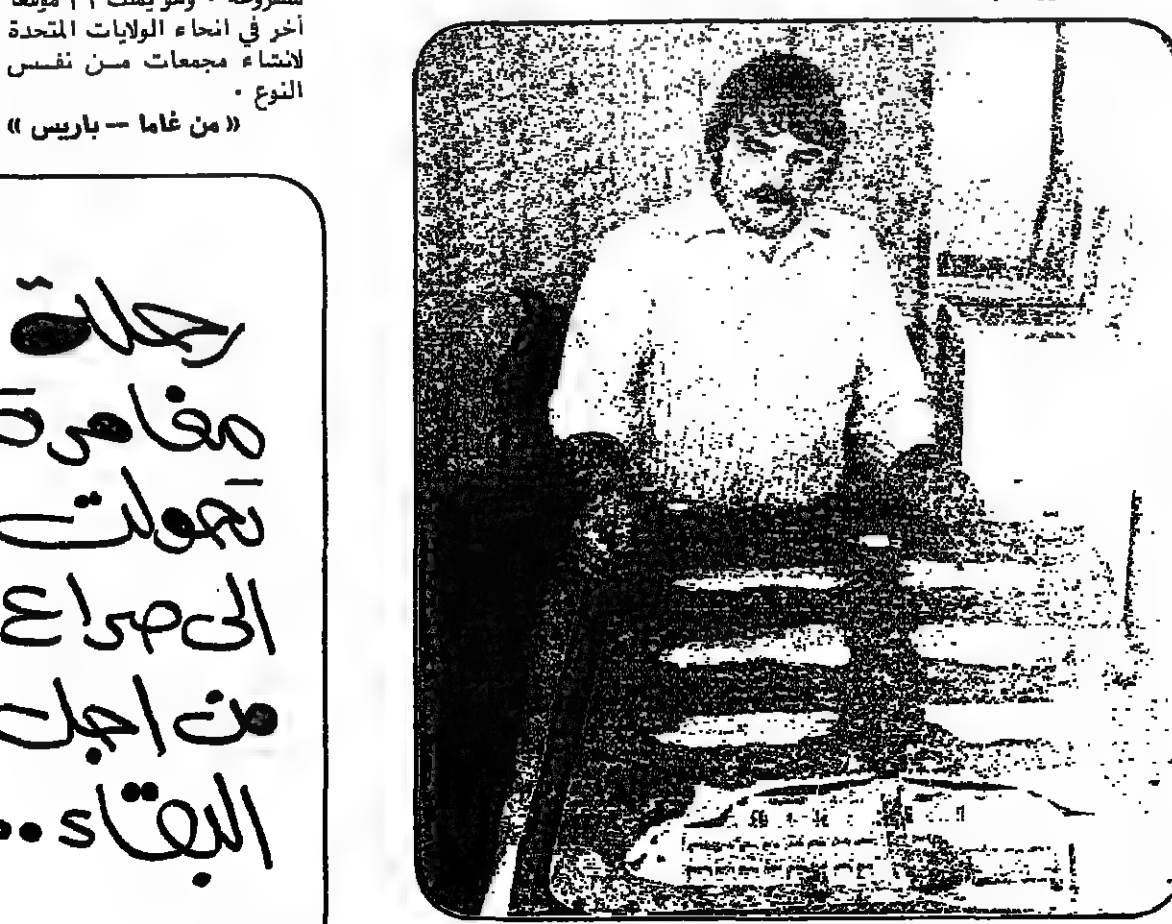 أخر في انحاء الولايات المتحدة
لانشاء مجمعات مـــن نفـــس
النوع ٠
« من غاما — باريس »
رحلة
مغامرة
تحولت
الى صراع
من اجل
البقاء ..